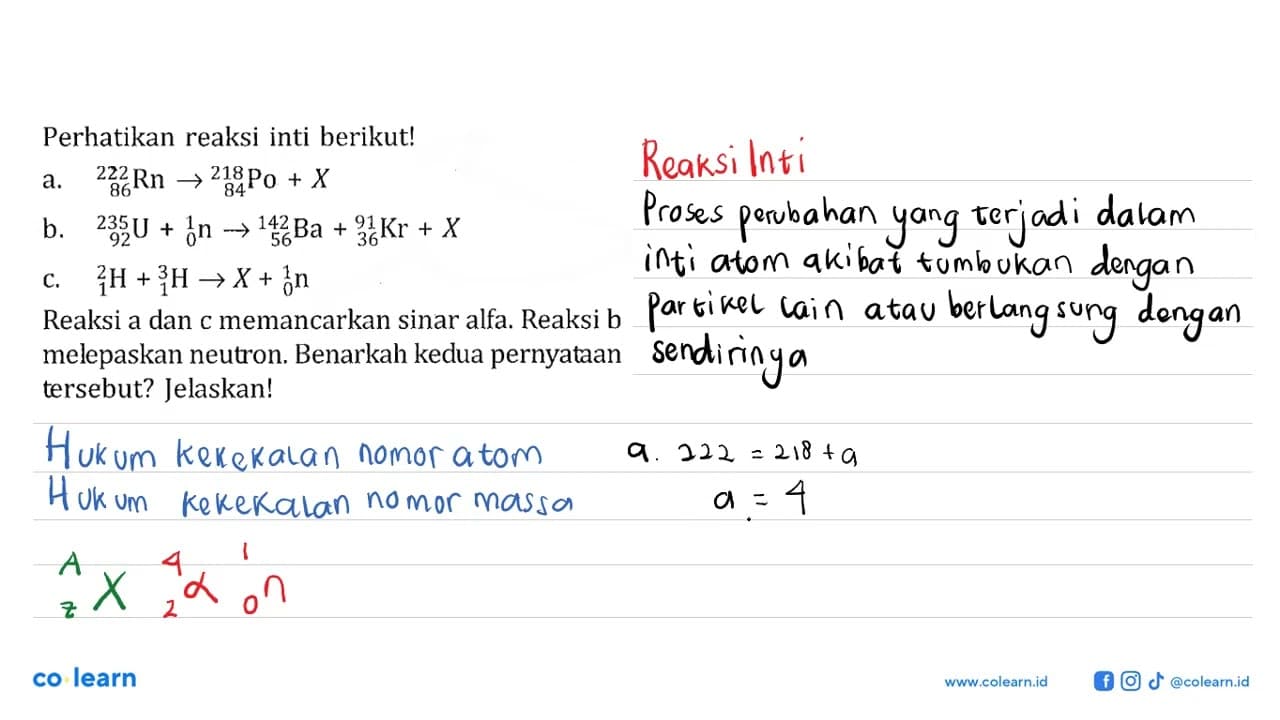 Perhatikan reaksi inti berikut!
a. ²²²₈₆Rn → ²¹⁸₈₄Po + X
b. ²³⁵₉₂U + ¹₀n → ¹⁴²₅₆Ba + ⁹¹₃₆Kr + X
c. ²₁H + ³₁H → X + ¹₀n
Reaksi a dan c memancarkan sinar alfa. Reaksi b
melepaskan neutron. Benarkah kedua pernyataan
tersebut? Jelaskan!
Reaksi Inti
Proses perubahan yang terjadi dalam
inti atom akibat tumbukan dengan
Partikel lain atau berlangsung dengan
sendirinya
Hukum kekekalan nomor atom
Hukum kekekalan nomor massa
ᴬzX ⁴₂α ¹₀n
a. 222 = 218 + a
a = 4
co·learn
www.colearn.id
@colearn.id